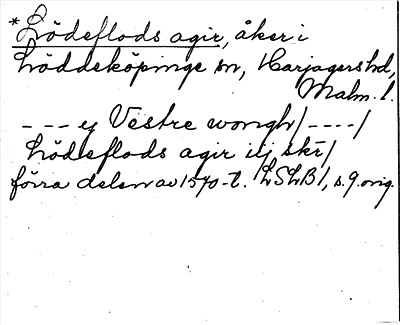 *Lödeflods agir, åker i
Löddeköpinge sn, Harjagers hd,
Malm. l.
- - - ej Vestre wongh/ - - - - /
Lödeflods agir iij skr/
förra delen av 1570-t. LSLB1, s. 9. orig.